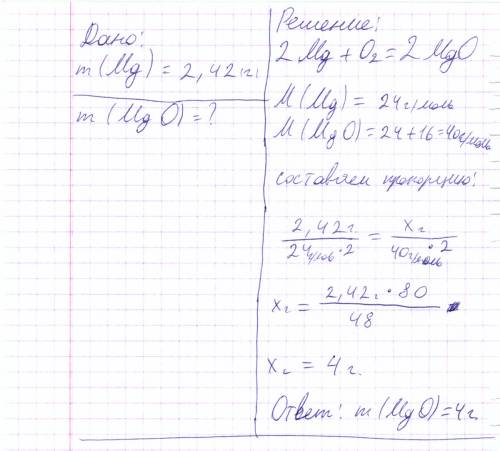 Дано:
m(Mg) = 2,42г.
m(MgO) = ?
Решение:
2Mg + O₂ = 2MgO
M(Mg) = 24г/моль
M(MgO) = 24 + 16 = 40г/моль
составляем пропорцию:
2,42г. / 24г/моль • 2 = xг / 40г/моль • 2
xг = 2,42г • 80 / 48
xг = 4г.
Ответ: m(MgO) = 4г.